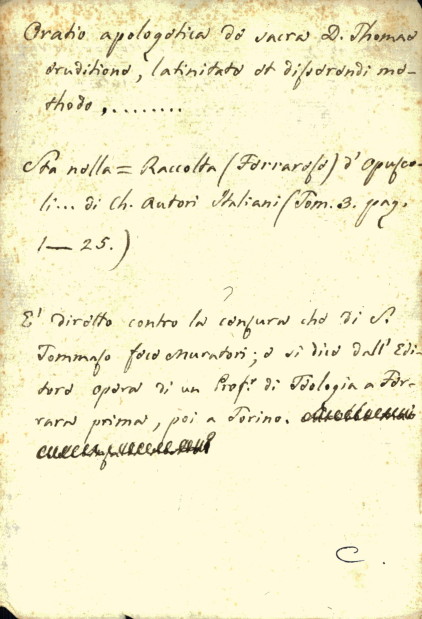 Oratio apologetica de sacra D. Thomae
eruditione, latinitate et disserendi me-
thodo,........
Sta nella = Raccolta (Ferrarese) d'Opusco-
li... di Ch. Autori Italiani (Tom. 3. pag.
1— 25.)
E' diretto contro la censura che di S.
Tommaso fece Muratori; e si dice dall'Edi-
tore opera di un Prof.r di Teologia a Fer-
rara prima, poi a Torino.
C.